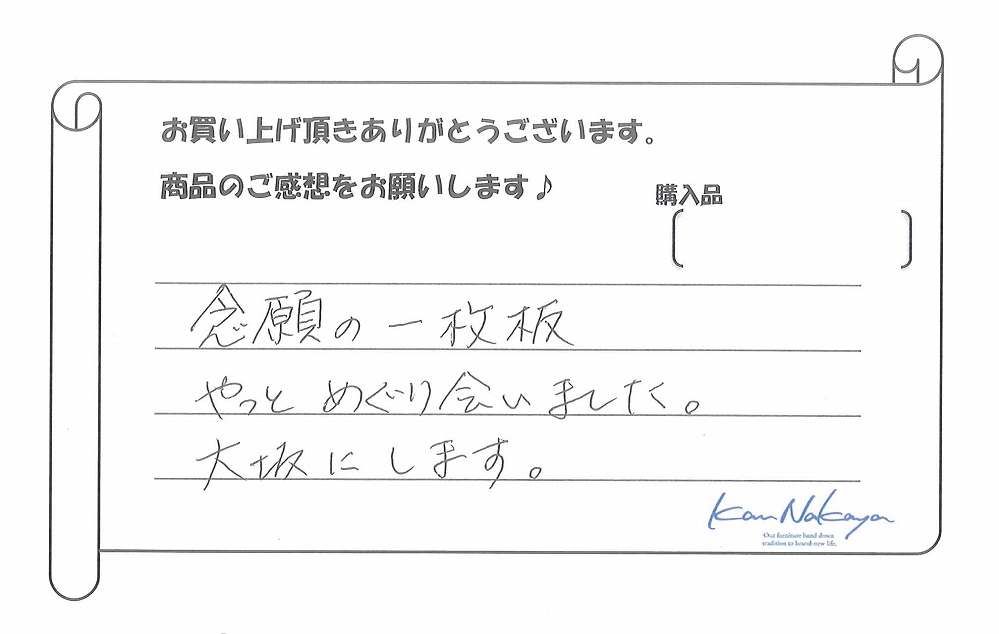 お買い上げ頂きありがとうございます。
商品のご感想をお願いします♪
購入品
念願の一枚板
やっと めぐり会いました。
大坂にします。
Kan Nakaya
Our furniture hand down
tradition to brand-new life.